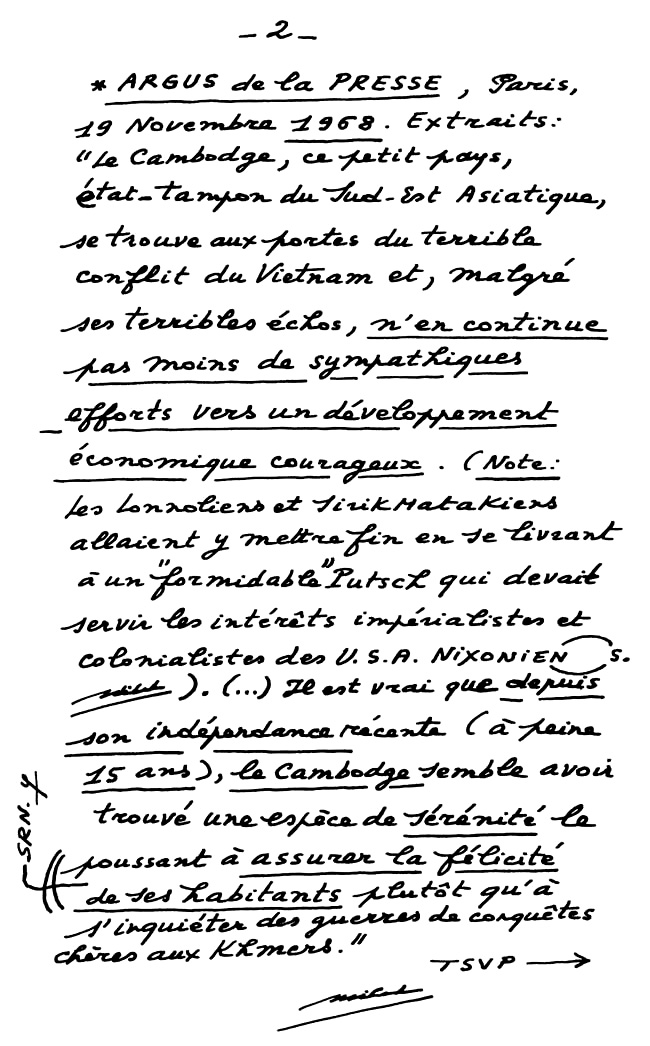 - 2 -
* ARGUS de la PRESSE, Paris,
19 Novembre 1968. Extraits:
"Le Cambodge, ce petit pays,
état-tampon du Sud-Est Asiatique,
se trouve aux portes du terrible
conflit du Vietnam et, malgré
ses terribles échos, n'en continue
pas moins de sympathiques
efforts vers un développement
économique courageux. (Note:
Les Lonnoliens et SirikMatakiens
allaient y mettre fin en se livrant
à un "formidable" Putsch qui devait
servir les intérêts impérialistes et
colonialistes des U.S.A. NiXONiEN S.
). (...) Il est vrai que depuis
son indépendance récente (à peine
15 ans), le Cambodge semble avoir
trouvé une espèce de sérénité le
poussant à assurer la félicité
de ses habitants plutôt qu'à
s'inquiéter des guerres de conquêtes
chères aux Khmers."
TSVP →
SRN.